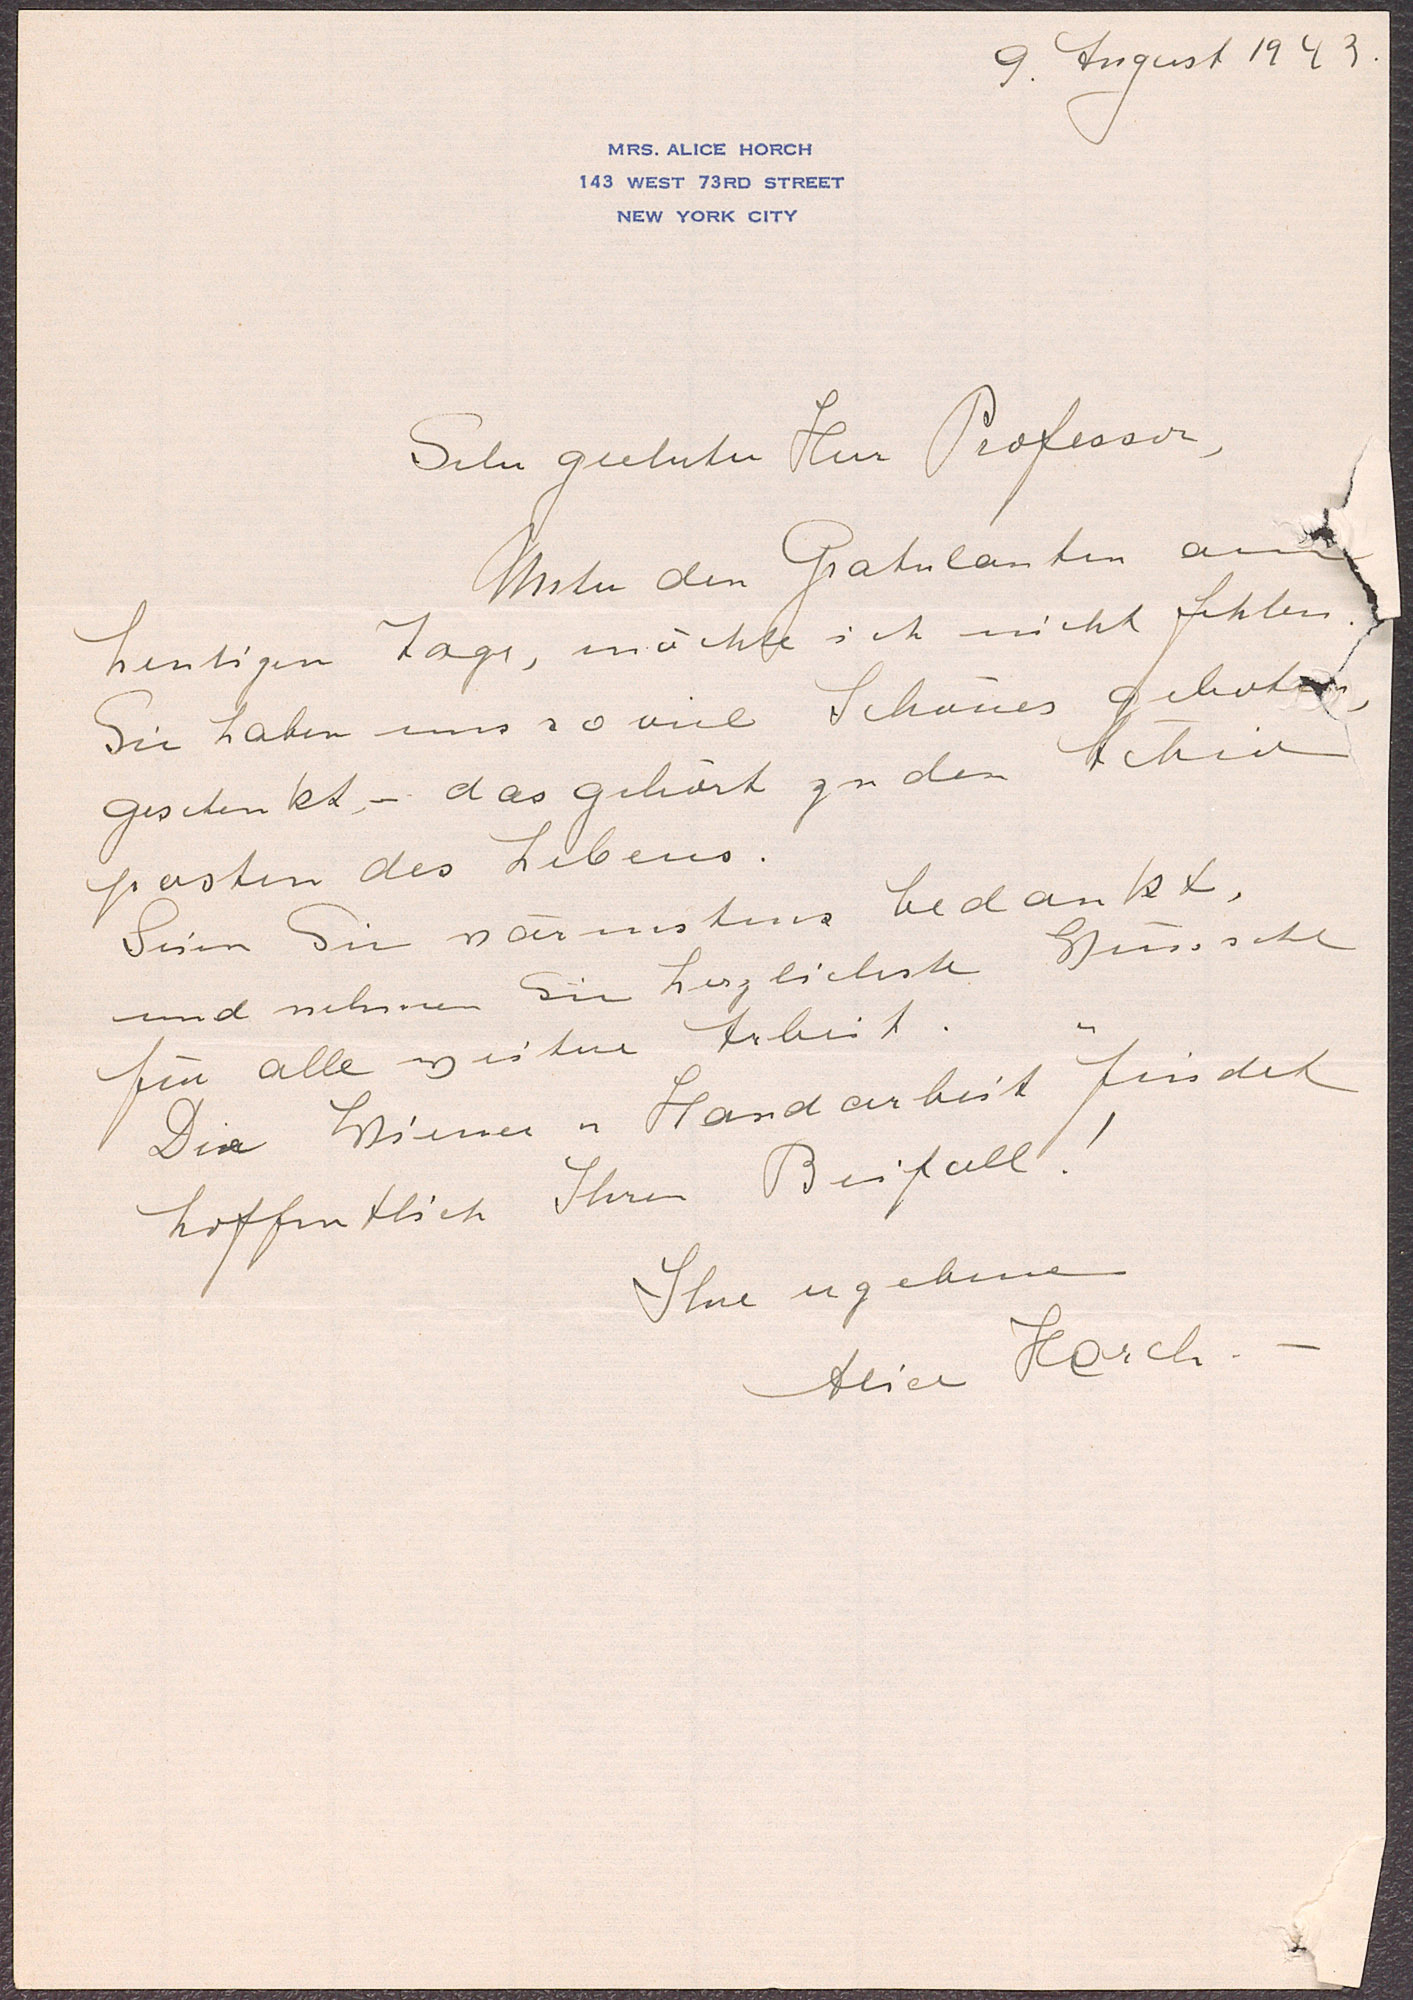 9. August 1943.
MRS. ALICE HORCH
143 WEST 73RD STREET
NEW YORK CITY
Sehr geehrter Herr Professor,
Unter den Gratulanten am
heutigen Tage, möchte ich nicht fehlen.
Sie haben uns so viel Schönes geboten,
geschenkt, – das gehört zu den Aktiv
posten des Lebens.
Seien Sie wärmstens bedankt,
und nehmen Sie herzlichste Wünsche
für alle weitere Arbeit.
Die Wiener " Handarbeit " findet
hoffentlich Ihren Beifall!
Ihre ergebene
Alice Horch. –